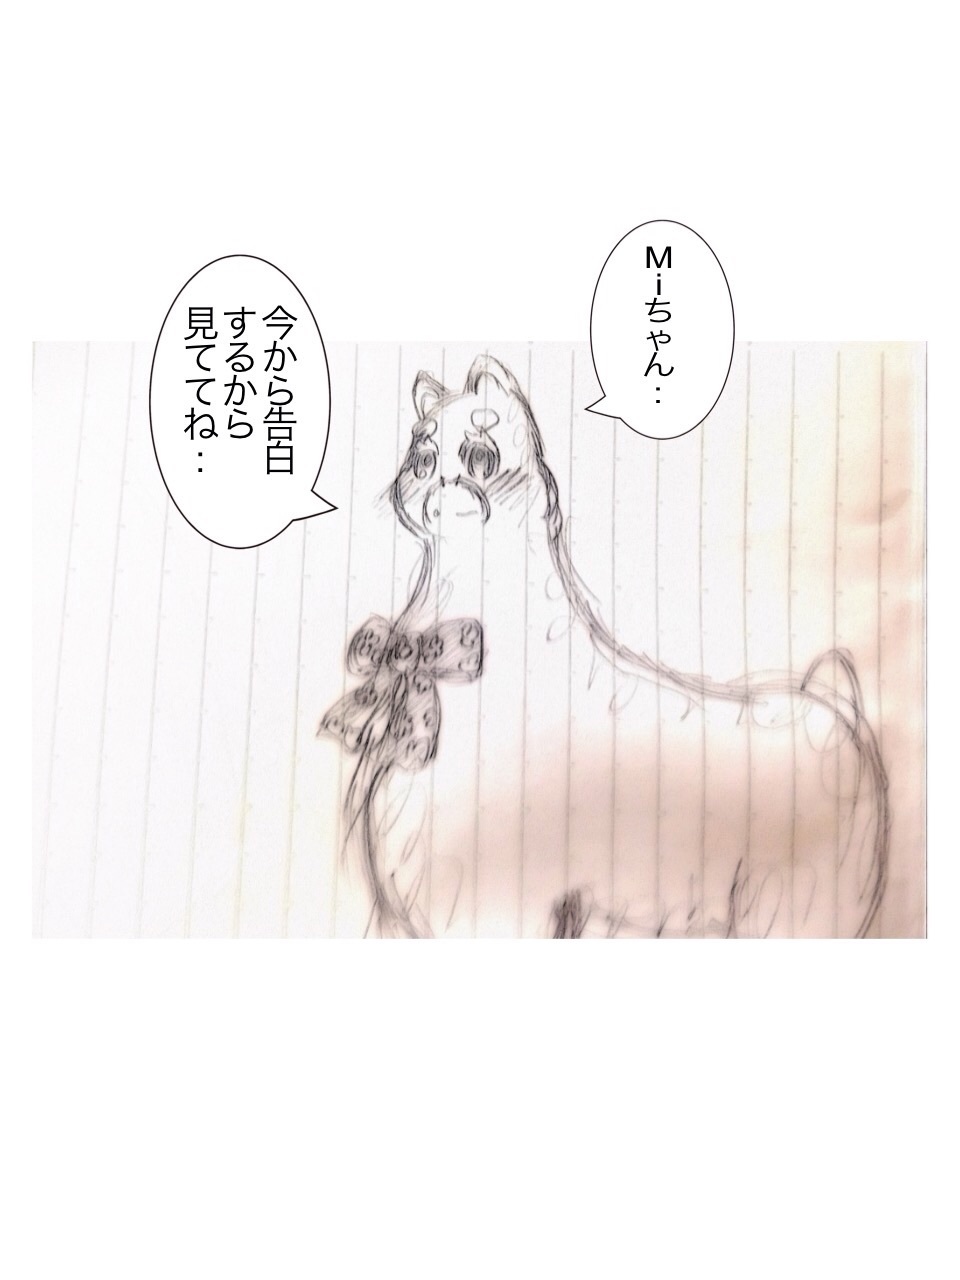 Miちゃん‥
今から告白
するから
見ててね‥